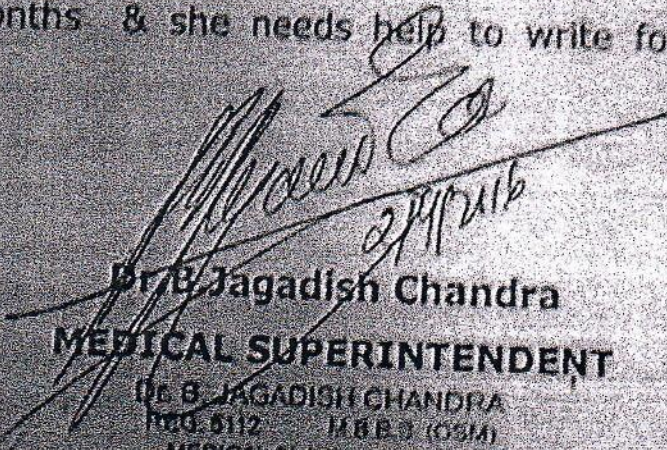 onths & she needs help to write fo
Dr. B Jagadish Chandra
MEDICAL SUPERINTENDENT
Dr. B. JAGADISH CHANDRA
REG. 5112 M.B.B.S (OSM)
MEDICAL